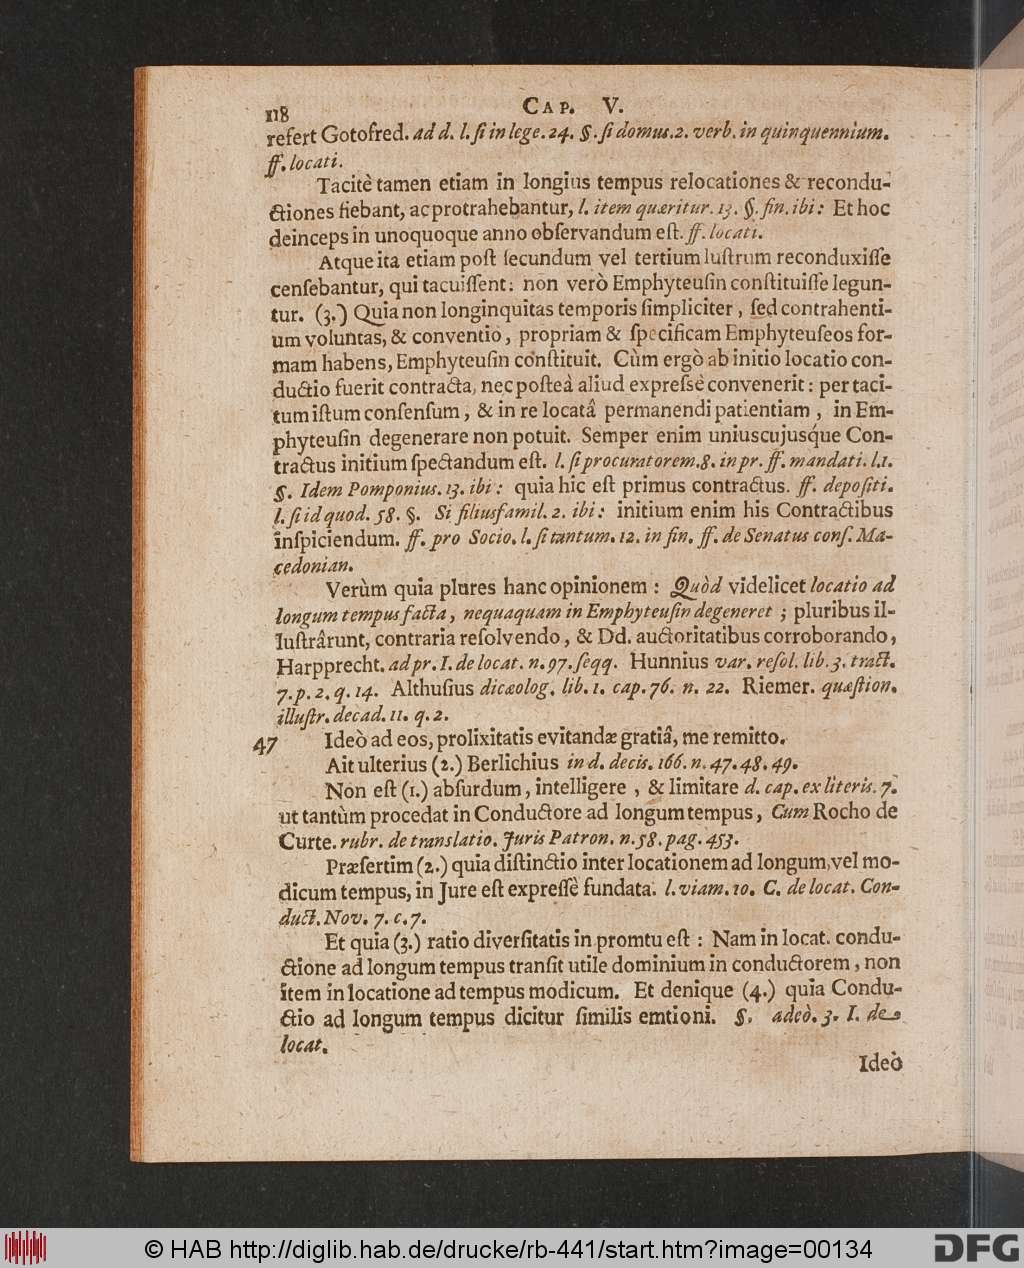 118
CAP. V.
refert Gotofred. ad d. l. ſi in lege. 24. §. ſi domus. 2. verb. in quinquennium.
ff. locati.
Tacitè tamen etiam in longius tempus relocationes & recondu-
ctiones fiebant, ac protrahebantur, l. item quæritur. 13. §. fin. ibi: Et hoc
deinceps in unoquoque anno obſervandum eſt. ff. locati.
Atque ita etiam poſt ſecundum vel tertium luſtrum reconduxiſſe
cenſebantur, qui tacuiſſent: non verò Emphyteuſin conſtituiſſe legun-
tur. (3.) Quia non longinquitas temporis ſimpliciter, ſed contrahenti-
um voluntas, & conventio, propriam & ſpecificam Emphyteuſeos for-
mam habens, Emphyteuſin conſtituit. Cùm ergò ab initio locatio con-
ductio fuerit contracta, nec poſteà aliud expreſsè convenerit: per taci-
tum iſtum conſenſum, & in re locatâ permanendi patientiam, in Em-
phyteuſin degenerare non potuit. Semper enim uniuscujusq́ue Con-
tractus initium ſpectandum eſt. l. ſi procuratorem. 8. in pr. ff. mandati. l. 1.
§. Idem Pomponius. 13. ibi: quia hic eſt primus contractus. ff. depoſiti.
l. ſi id quod. 58. §. Si filiusfamil. 2. ibi: initium enim his Contractibus
inſpiciendum. ff. pro Socio. l. ſi tantum. 12. in fin. ff. de Senatus conſ. Ma-
cedonian.
Verùm quia plures hanc opinionem: Quòd videlicet locatio ad
longum tempus facta, nequaquam in Emphyteuſin degeneret; pluribus il-
luſtrârunt, contraria reſolvendo, & Dd. auctoritatibus corroborando,
Harpprecht. ad pr. I. de locat. n. 97. ſeqq. Hunnius var. reſol. lib. 3. tract.
7. p. 2. q. 14. Althuſius dicæolog. lib. 1. cap. 76. n. 22. Riemer. quæſtion.
illuſtr. decad. 11. q. 2.
47 Ideò ad eos, prolixitatis evitandæ gratiâ, me remitto.
Ait ulterius (2.) Berlichius in d. decis. 166. n. 47. 48. 49.
Non eſt (1.) abſurdum, intelligere, & limitare d. cap. ex literis. 7.
ut tantùm procedat in Conductore ad longum tempus, Cum Rocho de
Curte. rubr. de translatio. Juris Patron. n. 58. pag. 453.
Præſertim (2.) quia diſtinctio inter locationem ad longum, vel mo-
dicum tempus, in Jure eſt expreſſè fundata. l. viam. 10. C. de locat. Con-
duct. Nov. 7. c. 7.
Et quia (3.) ratio diverſitatis in promtu eſt: Nam in locat. condu-
ctione ad longum tempus tranſit utile dominium in conductorem, non
item in locatione ad tempus modicum. Et denique (4.) quia Condu-
ctio ad longum tempus dicitur ſimilis emtioni. §. adeò. 3. I. de
locat.
Ideò
© HAB http://diglib.hab.de/drucke/rb-441/start.htm?image=00134
DFG